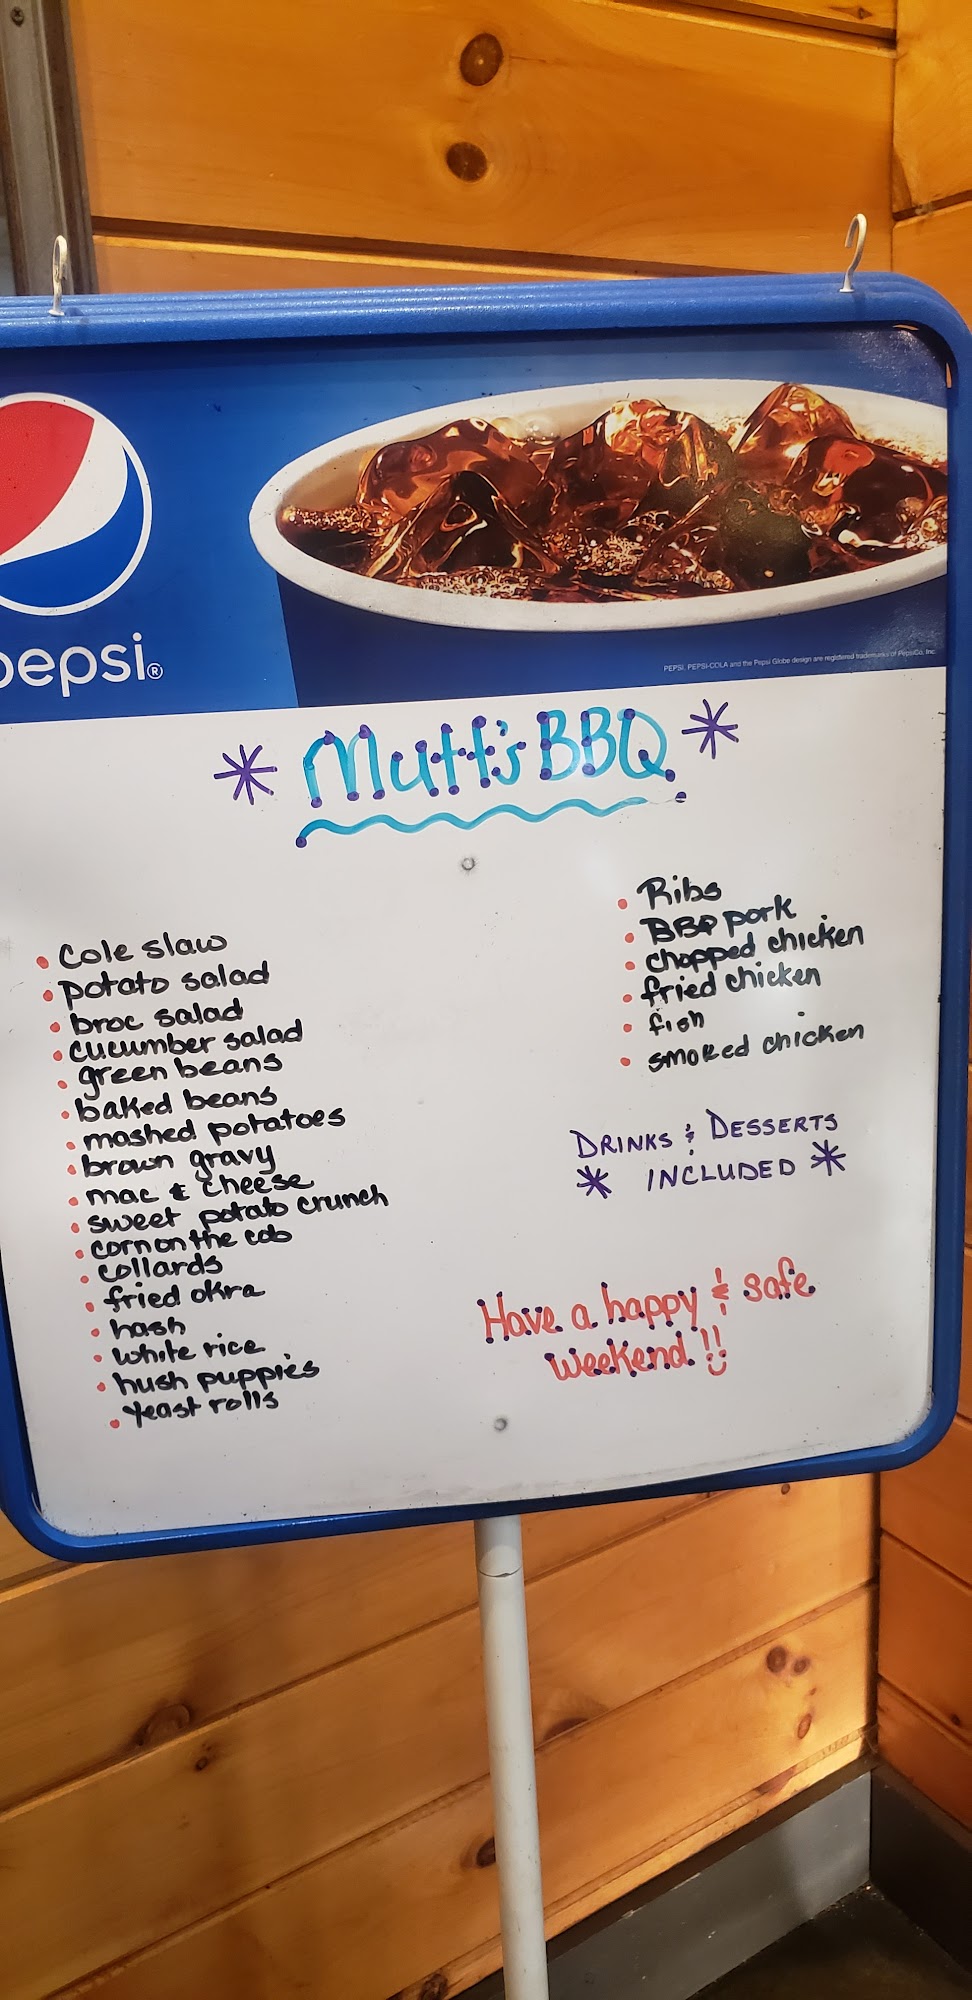 pepsi®
PEPSI, PEPSI-COLA and the Pepsi Globe design are registered trademarks of PepsiCo, Inc.
* Mutt's BBQ *
• Cole slaw
• potato salad
• broc salad
• cucumber salad
• green beans
• baked beans
• mashed potatoes
• brown gravy
• mac & cheese
• sweet potato crunch
• corn on the cob
• collards
• fried okra
• hash
• white rice
• hush puppies
• yeast rolls
• Ribs
• BBQ pork
• chopped chicken
• fried chicken
• fish
• smoked chicken
DRINKS & DESSERTS
* INCLUDED *
Have a happy & safe
weekend!!